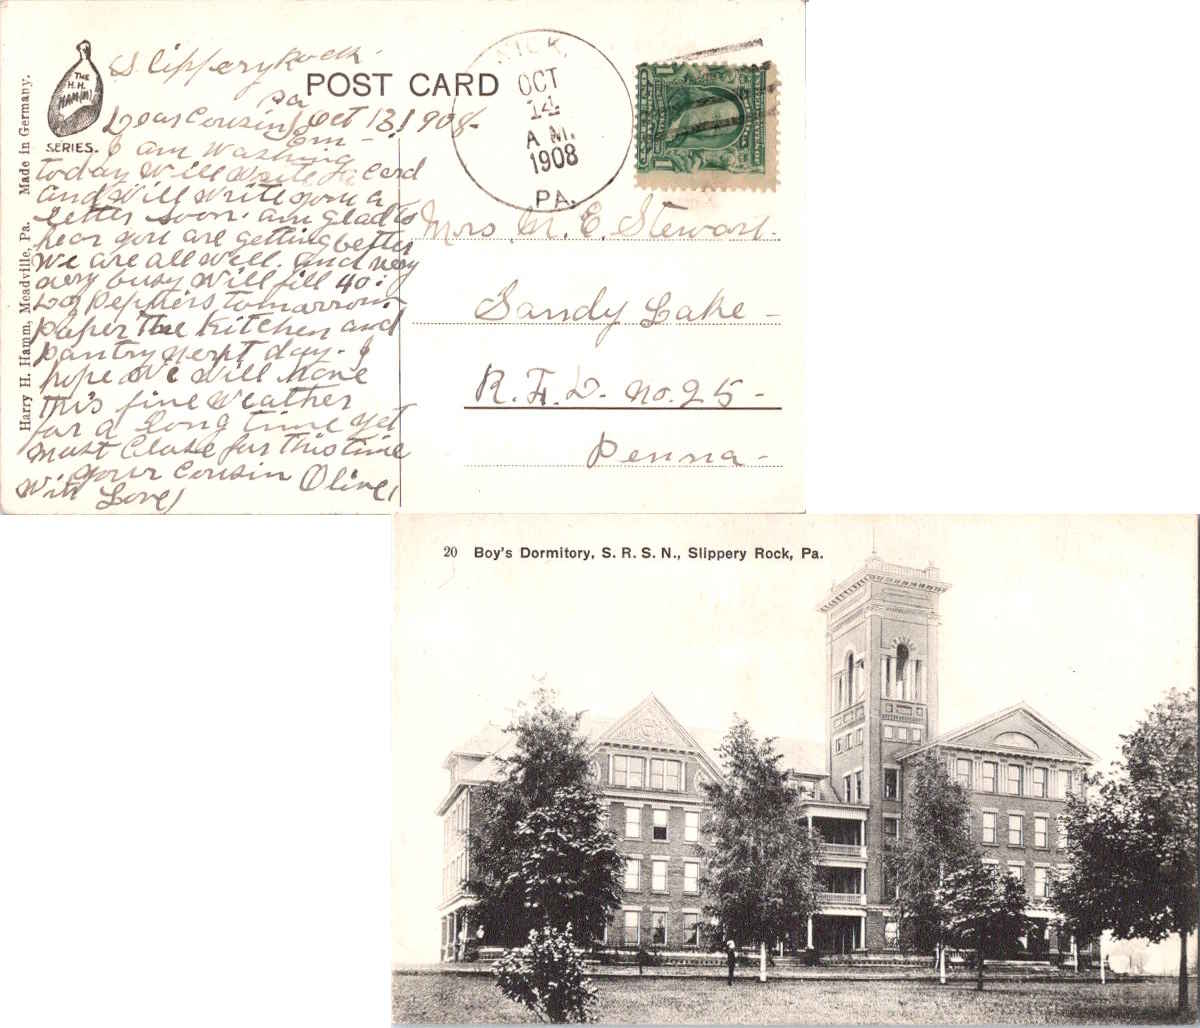 Slippery Rock
POST CARD
Pa
Oct 13, 1908-
Dear Cousin
Em -
I am washing
today Will Write a Card
and Will Write you a
letter soon. am glad to
hear you are getting better
We are all Well. and very
very busy Will fill 40
peppers tomarrow
paper The kitchen and
pantry next day - I
hope We Will have
This fine Weather
for a long time yet
must Close for This time
your Cousin Olive
With Love
THE
H. H.
HAM(M)
SERIES.
Harry H. Hamm, Meadville, Pa. Made in Germany.
OCT
14
A M.
1908
PA.
1 1
Mrs M. E. Stewart.
Sandy Lake -
R. F. D. No. 25 -
Penna -
20 Boy's Dormitory, S. R. S. N., Slippery Rock, Pa.